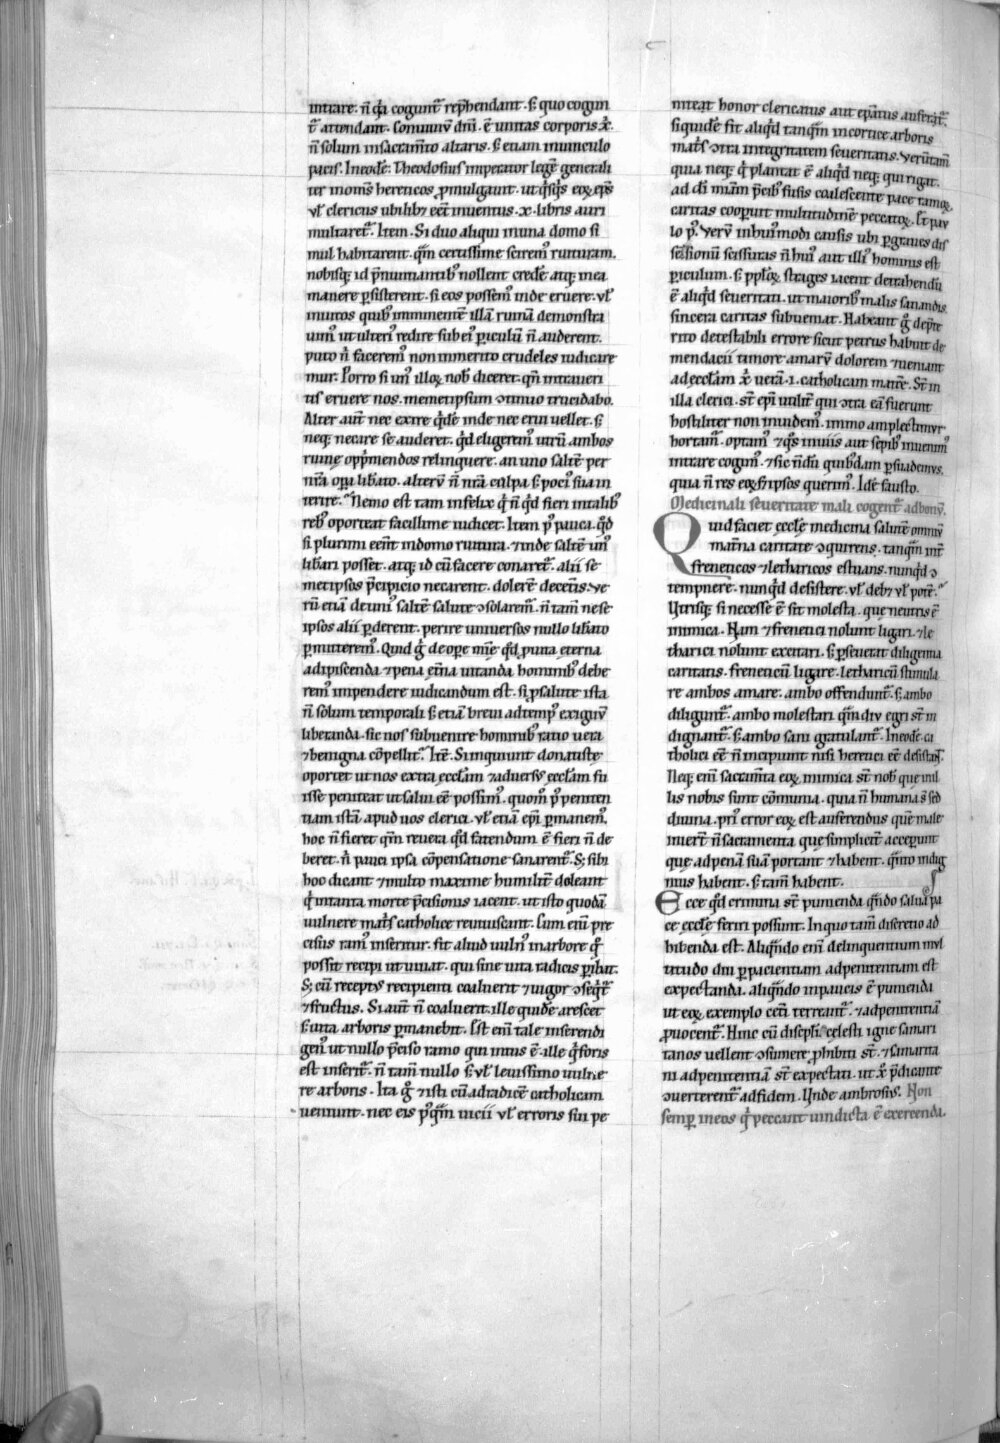 intrare. n̄ q̄a cogunt᷑ rep̄hendant. s; quo cogun
t᷑ attendant. Conuiuiv̄ dn̄i. ē unitas corporis x̄.
n̄ solum insacram̄to altaris. s; etiam inuinculo
pacis. Ineodē. Theodosius imperator legē generali
ter inomīs hereticos ꝓmulgauit. ut q̄sq̇s eoꝝ ep̄s
ul̄ clericus ubilibꝫ eēt inuentus .x. libris auri
multaret᷑. Item. Si duo aliqui inuna domo si
mul habitarent. qm̄ certissime scirem᷒ ruituram.
nobisq; id p̄nuntiantib᷒ nollent credē. atq; inea
manere ꝑsisterent. si eos possem᷒ inde eruere. ul̄
inuitos quib᷒ imminentē illā ruinā demonstra
uim᷒ ut ulteri᷒ redire sub ei᷒ ꝑiculū n̄ auderent.
puto n̄ facerem᷒ non immerito crudeles iudicare
mur. Porro si un᷒ illoꝝ nob̄ diceret. qn̄ intraueri
tis eruere nos. memetipsum ↄtinuo trucidabo.
Alter aut̄ nec exire q̇dē inde nec erui uellet. s;
neq; necare se auderet. qd̄ eligerem᷒ utrū ambos
ruinę opp̄mendos relinquere. an uno saltē per
nr̄a oꝑa lib̄ato. alterv̄ n̄ nr̄a culpa s; poci᷒ sua in
terire. Nemo est tam infelix q̄ n̄ qd̄ fieri intalib᷒
reb᷒ oporteat facillime iudicet. Item p᷒ pauca. qd̄
si plurimi eēnt indomo ruitura. ⁊inde saltē un᷒
lib̄ari posset. atq; id cū facere conaret᷑. alii se
metipsos p̄cipicio necarent. dolorē decet̄is ue
rū etiā deuni᷒ saltē salute ↄsolarem᷒. n̄ tam̄ ne se
ipsos alii ꝑderent. perire uniuersos nullo lib̄ato
ꝑmitterem᷒. Quid ḡ deope mīe qd̄ ꝓuita eterna
adipiscenda ⁊pena et̄na uitanda hominib᷒ debe
rem᷒ impendere iudicandum est. si ꝓsalute ista
n̄ solum temporali s; etiā breui adtemp᷒ exiguv̄
liberanda. sic nos subuenire hominib᷒ ratio uera
⁊benigna cōpellit᷑. Itē. Si inquiunt donatistę
oportet ut nos extra eccl̄am ⁊aduersv̄s eccl̄am fu
isse peniteat ut salui eē possim᷒. quom᷒ p᷒ peniten
tiam istā apud uos clerici. ul̄ etiā ep̄i ꝑmanem᷒.
hoc n̄ fieret qm̄ reuera qd̄ fatendum ē fieri n̄ de
beret. n̄ pacis ipsa cōpensatione sanarent᷑. S; sibi
hoc dicant ⁊multo maxime humilit̄ doleant
q̇ intanta morte p̄cisionis iacent. ut isto quodā
uulnere mat̄s catholice reuiuiscant. Cum eni᷒ pre
cisus ram᷒ inseritur. fit aliud uuln᷒ inarbore q̄
possit recipi ut uiuat. qui sine uita radicis ꝑibat.
S; cū receptv̄s recipienti coaluerit ⁊uigor ↄseq̇t᷑
⁊fructus. Si aut̄ n̄ coaluerit. ille quidē arescet
s; uita arboris ꝑmanebit. Est eni᷒ tale inserendi
gen᷒ ut nullo p̄ciso ramo qui intus ē. ille q̇ foris
est inserit᷑. n̄ tam̄ nullo s; ul̄ leuissimo uulne
re arboris. Ita ḡ ⁊isti cū adradicē catholicam
ueniunt. nec eis p᷒qm̄ uicii ul̄ erroris sui pe
niteat honor clericatus aut ep̄atus aufert᷑.
fit quidē fit aliqd̄ tanqm̄ incortice arboris
mat̄s ↄtra integritatem seueritatis. Verūtam̄
quia neq; q̇ plantat ē aliqd̄ neq; qui rigat.
ad dī miām p̄cib᷒ fusis coalescente pace ramoꝝ
caritas cooperit multitudinē peccatoꝝ. Et pau
lo p᷒. Verv̄ inhui᷒modi causis ubi ꝑ graues dis
sensionū scissuras n̄ hui᷒ aut illi᷒ hominis est
ꝑiculum. s; pp̄loꝝ strages iacent detrahendū
ē aliqd̄ seueritati. ut maiorib᷒ malis sanandis
sincera caritas subueniat. Habeant ḡ depīe
rito detestabili errore sicut petrus habuit de
mendacii timore amarv̄ dolorem ⁊ueniant
ad eccl̄am x̄ uerā .i. catholicam matrē. St̄ in
illa clerici. st̄ ep̄i utilit̄ qui ↄtra eā fuerunt
hostiliter non inuidem᷒. immo amplectimvr
hortam᷒. optam᷒ ⁊q̄s inuiis aut sepib᷒ inuenim᷒
intrare cogim᷒. ⁊sic n̄dū quibd̄am ꝑsuademvs.
quia n̄ res eoꝝ s; ipsos querim᷒. Idē fausto.
Medicinali seueritate mali cogent᷑ adbonv̄.
Quid faciet eccl̄ę medicina salutē omniv̄
mat̄na caritate ↄquirens. tanqm̄ int̄
freneticos ⁊letharicos estuans. nunqd̄ ↄ
tempnere. nunqd̄ desistere. ul̄ debꝫ ul̄ potē.
Utrisq; si necesse ē sit molesta. que neutris ē
inimica. Nam ⁊frenetici nolunt ligari. ⁊le
tharici nolunt excitari. s; ꝑseuerat diligentia
caritatis. freneticū ligare. letharicū stimula
re ambos amare. ambo offendunt᷑. s; ambo
diligunt᷑. ambo molestati qm̄div egri st̄ in
dignant᷑. s; ambo sani gratulant᷑. Ineodē. ca
tholici eē n̄ incipiunt nisi heretici eē desistāt.
Neq; eni᷒ sacram̄ta eoꝝ inimica st̄ nob̄ que il
lis nobis sunt cōmunia. quia n̄ humana s̄ sed
diuina. pri᷒ error eoꝝ est auferendus quē male
inuert̄ n̄ sacramenta que simplicit̄ acceperunt
que adpenā suā portant ⁊habent. q̄nto indig
nius habent. s; tam̄ habent.
Ecce qd̄ crimina st̄ punienda q̄ndo salua pa
ce eccl̄ę feriri possunt. Inquo tam̄ discretio ad
hibenda est. Aliq̄ndo eni᷒ delinquentium mvl
titudo diu ꝑ pacientiam adpenitentiam est
expectanda. aliq̄ndo inpaucis ē punienda
ut eoꝝ exemplo cet̄i terreant᷑. ⁊adpenitentiā
ꝓuocent᷑. Hinc cū discipl̄i celesti igne samari
tanos uellent ↄsumere ꝓhibiti st̄. ⁊samarita
ni adpenitentiā st̄ expectati. ut x̄ p̄dicante
ↄuerterent᷑ adfidem. Unde ambrosius. Non
semꝑ ineos q̇ peccant uindicta ē exercenda.